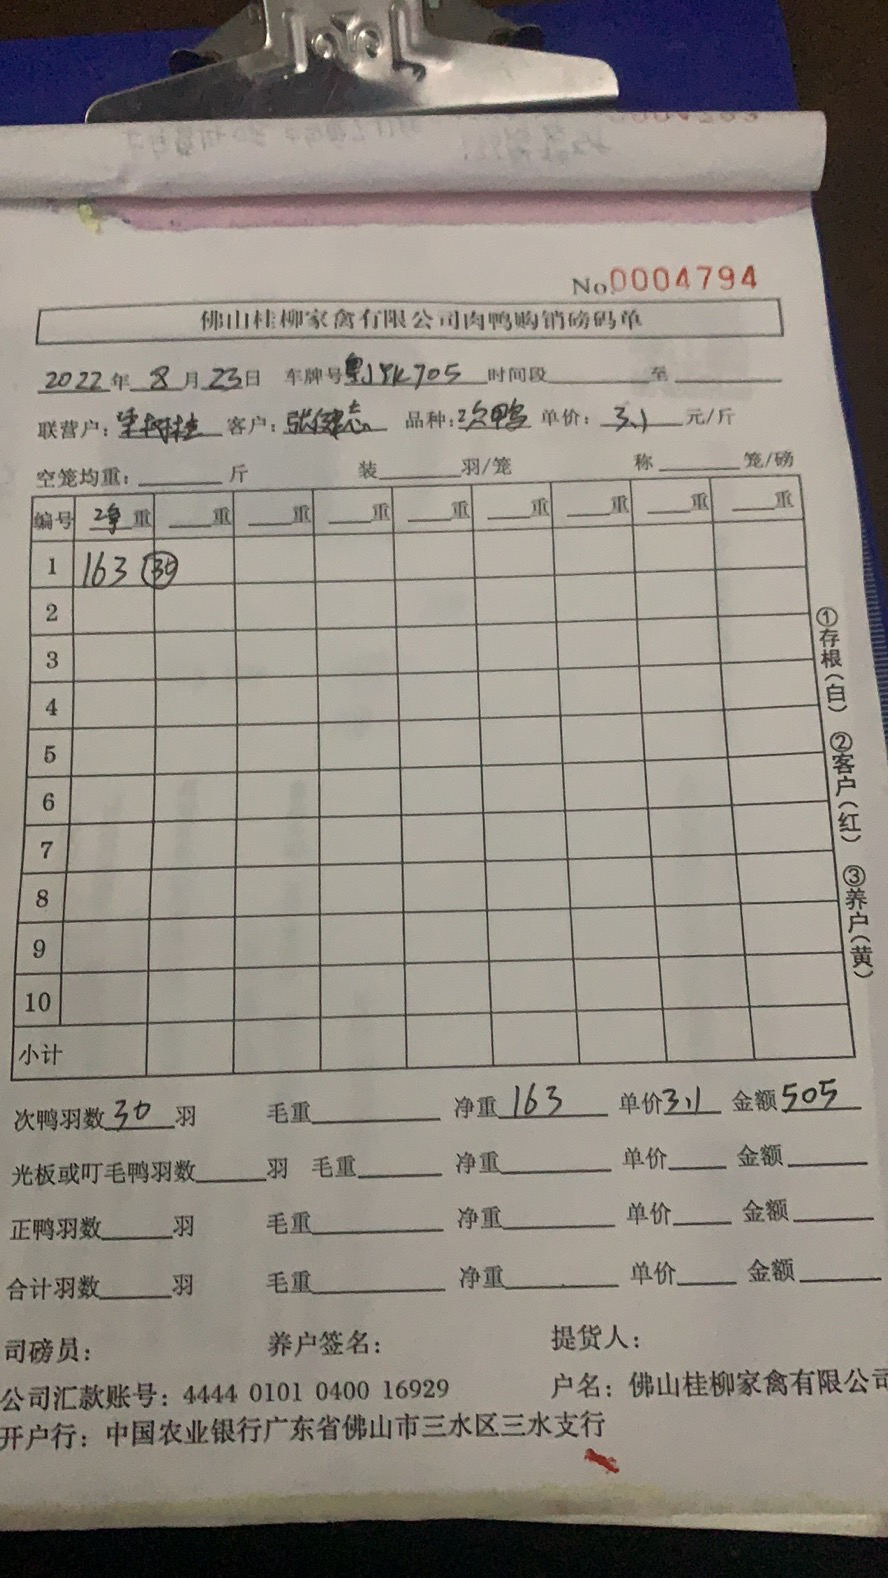 No.0004794
佛山桂柳家禽有限公司肉鸭购销磅码单
2022年 8月23日 车牌号粤JYK705 时间段 至
联营户: 客户:张健志 品种:次鸭 单价: 3.1 元/斤
空笼均重: 斤 装 羽/笼 称 笼/磅
编号 净重 重 重 重 重 重 重 重 重
1 163 30
2
3
4
5
6
7
8
9
10
小计
①存根(白) ②客户(红) ③养户(黄)
次鸭羽数30羽 毛重 净重163 单价3.1 金额505
光板或叮毛鸭羽数 羽 毛重 净重 单价 金额
正鸭羽数 羽 毛重 净重 单价 金额
合计羽数 羽 毛重 净重 单价 金额
司磅员: 养户签名: 提货人:
公司汇款账号: 4444 0101 0400 16929 户名: 佛山桂柳家禽有限公司
开户行: 中国农业银行广东省佛山市三水区三水支行